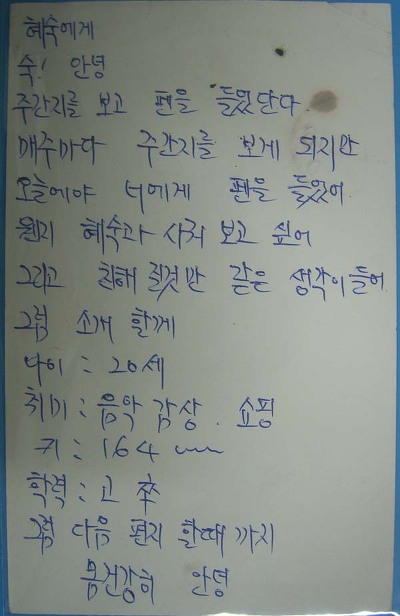 혜숙에게
숙! 안녕
주간지를 보고 펜을 들었단다.
매주마다 주간지를 보게 되지만
오늘에야 너에게 펜을 들었어
웬지 혜숙과 사귀 보고 싶어
그리고 친해 질것만 같은 생각이들어
그럼 소개 할께
나이 : 20세
취미 : 음악 감상. 쇼핑
키 : 164 cm
학력 : 고 卒
그럼 다음 편지 할때 까지
몸건강히 안녕